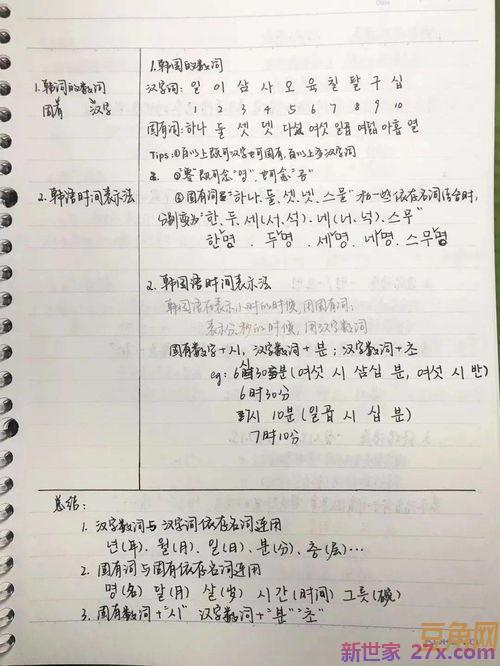 1.韩词的数词
固有 汉字
2.韩语时间表示法
1.韩国的数词
汉字词: 일 이 삼 사 오 육 칠 팔 구 십
1 2 3 4 5 6 7 8 9 10
固有词: 하나 둘 셋 넷 다섯 여섯 일곱 여덟 아홉 열
Tips: ①百以上既可汉字也可固有,百以上为汉字词
②"零"既可念"영",也可念"공"
③固有词在"하나.둘.셋.넷.스물"和一些依存名词结合时,
分别变为"한.두.세(서.석).네(너.넉).스무"
한명.두명.세명.네명.스무명
2.韩国语时间表示法
韩国语在表示小时的时候,用固有词;
表示分.秒的时候,用汉字数词
固有数字+시,汉字数词+분;汉字数词+초
eg: 6시30分(여섯 시 삼십 분, 여섯 시 반)
6时30分
시 10분(일곱 시 십 분)
7时10分
总结:
1. 汉字数词与汉字词依存名词连用
년(年).월(月).일(日).분(分).층(层)…
2. 固有词与固有依存名词连用
명(名) 달(月) 살(岁) 시간(时间) 그릇(碗)
3. 固有数词+"시" 汉字数词+"분""초"
豆角网
新世家 27x.com